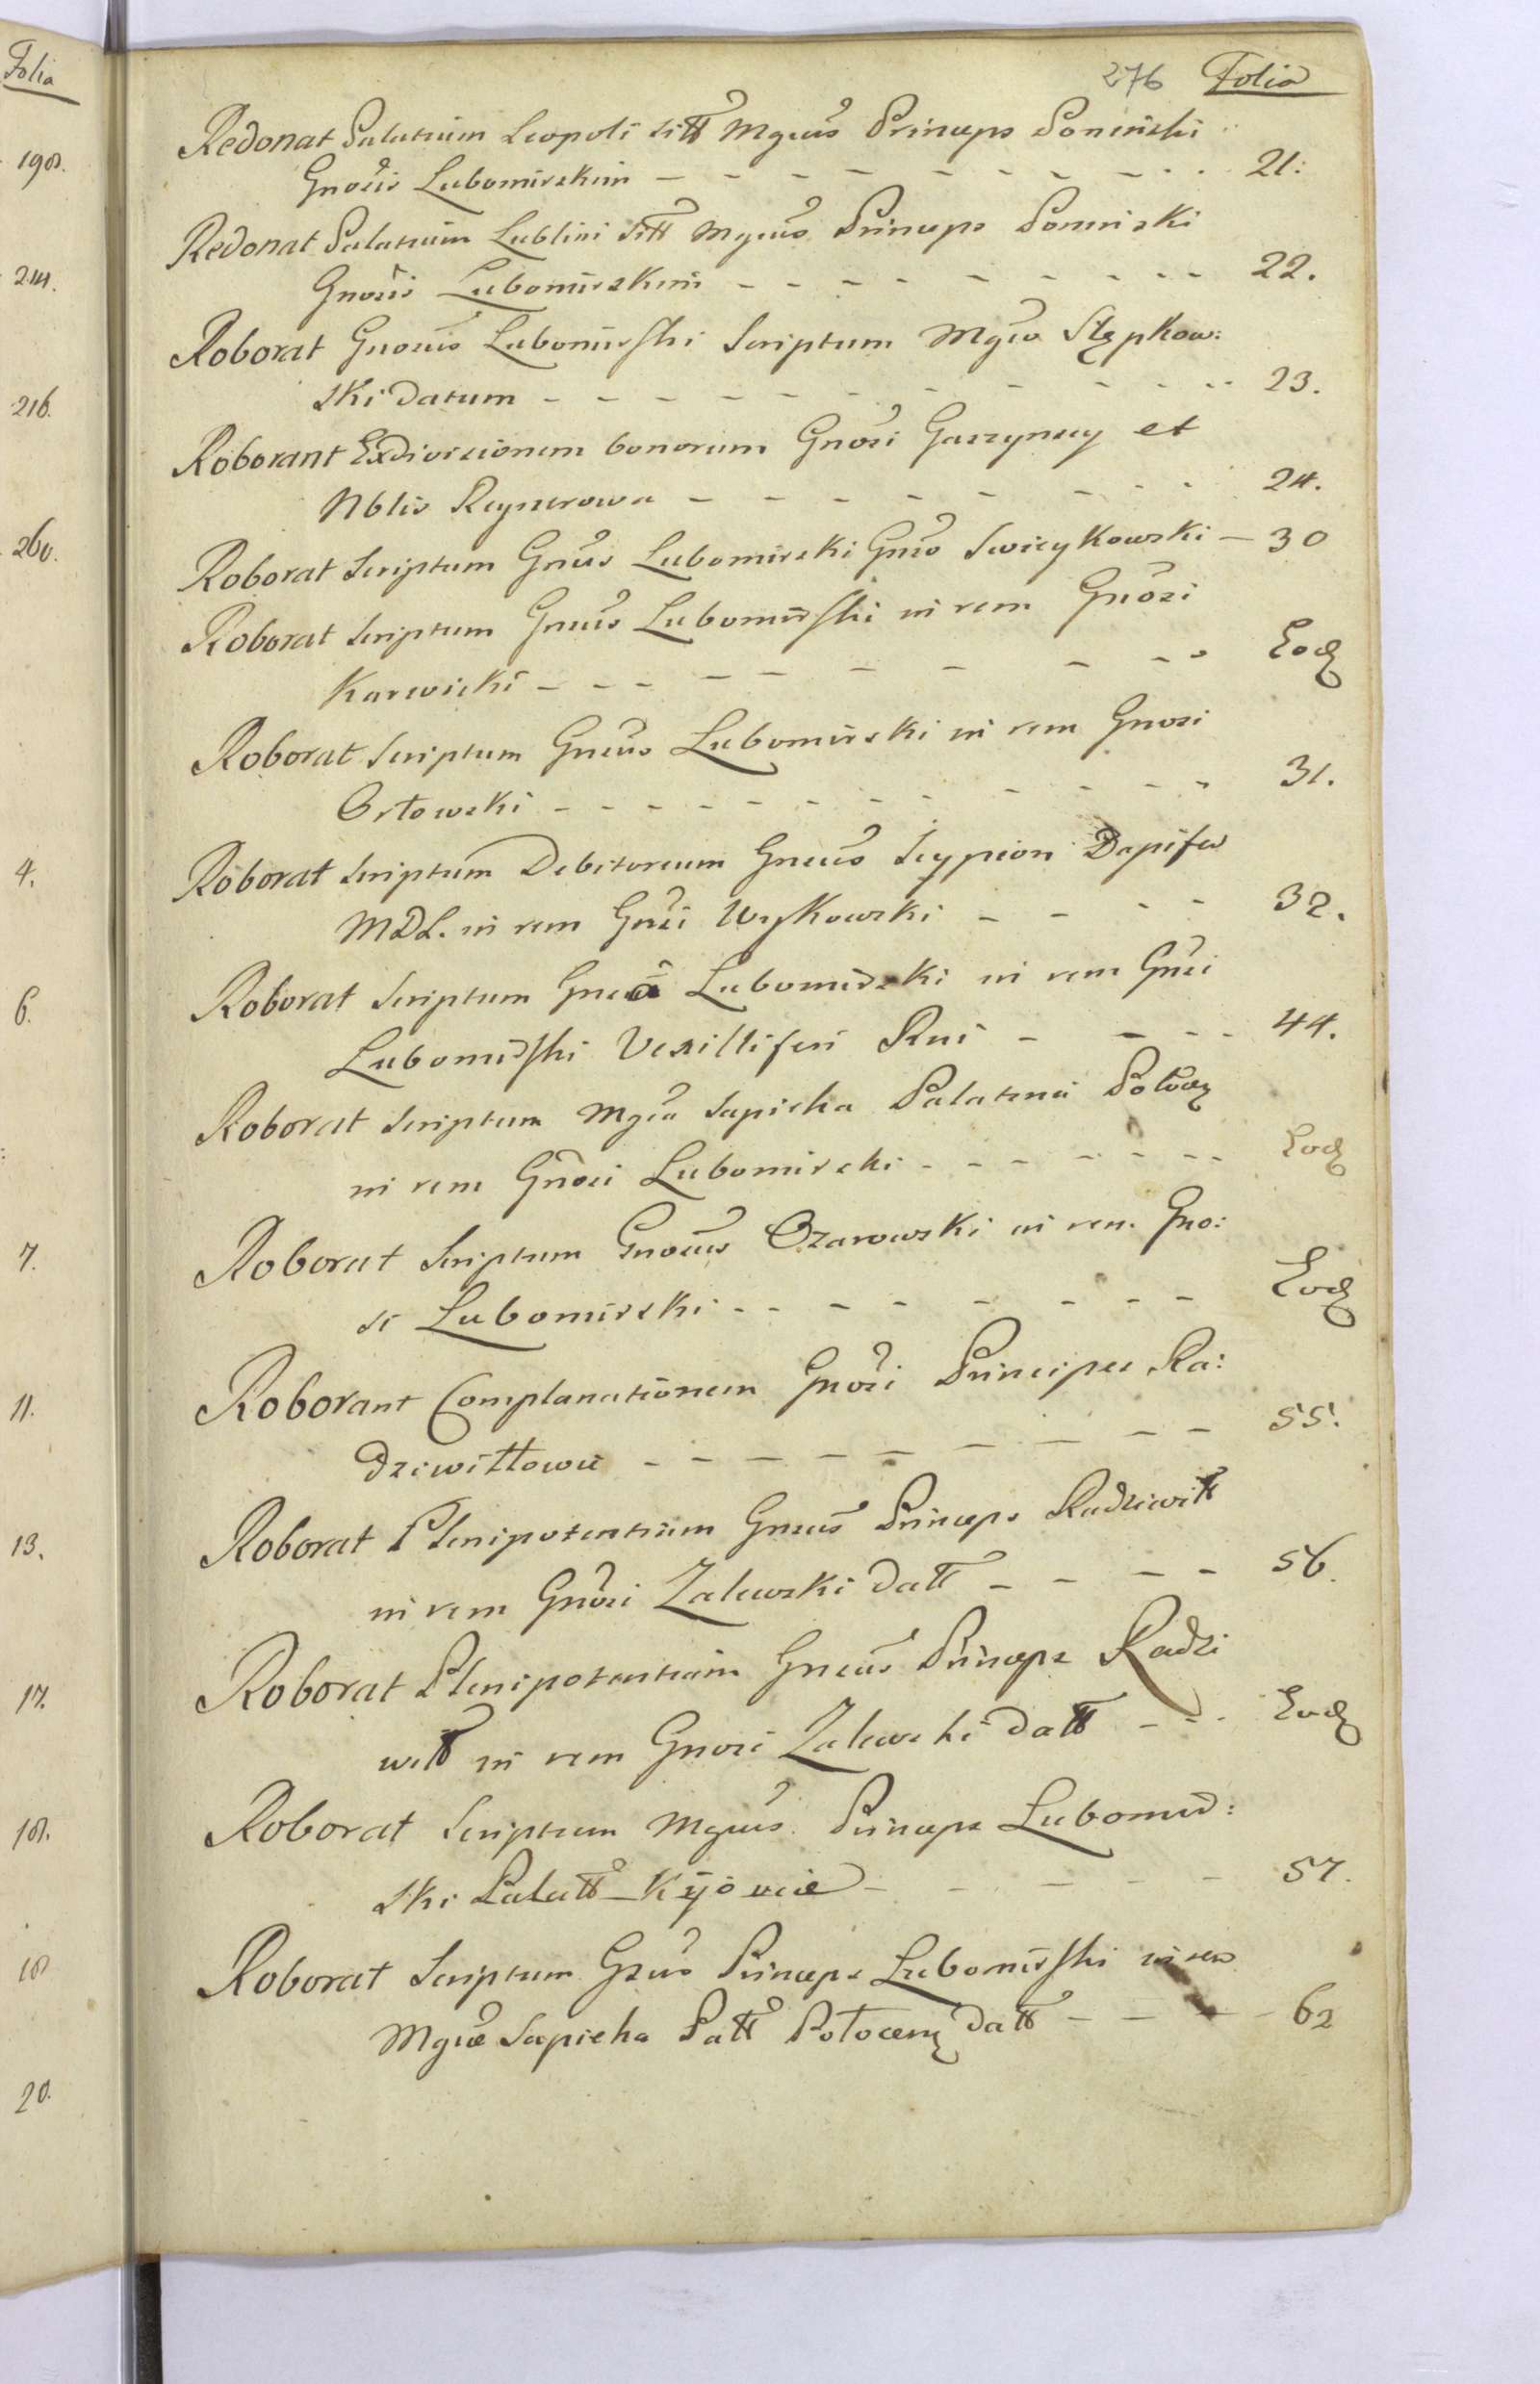 Folia
198.
214.
216.
260.
4.
6.
7.
11.
13.
17.
18.
18
20.
276 Folia
Redonat Palatium Leopoli sitt Mgcus Princeps Poninski
Gnosis Lubomirskim - - - - - - - - - 21:
Redonat Palatium Lublini sitt Mgcus Princeps Poninski
Gnosis Lubomirskim - - - - - - - - 22.
Roborat Gnosus Lubomirski Scriptum Mgco Stępkow:
ski datum - - - - - - - - - - 23.
Roborant Exdivisionem bonorum Gnosi Gaszynscy et
Nblis Reynerowa - - - - - - - - 24.
Roborat Scriptum Gnsus Lubomirski Gnso Swieykowski - 30
Roborat Scriptum Gnsus Lubomirski in rem Gnosi
Karwicki - - - - - - - - - Eod
Roborat Scriptum Gnsus Lubomirski in rem Gnosi
Orłowski - - - - - - - - - - - 31.
Roborat Scriptum Debitorium Gnsus Scypion Dapifer
MDL. in rem Gnsi Wykowski - - - - 32.
Roborat Scriptum Gnsa Lubomirski in rem Gnsi
Lubomirski Vexilliferi Rni - - - - 44.
Roborat Scriptum Mgca Sapieha Palatina Połocz
in rem Gnosi Lubomirski - - - - - - - Eod
Roborat Scriptum Gnosus Ozarowski in rem Gno:
si Lubomirski - - - - - - - - - Eod
Roborant Complanationem Gnosi Principes Ra:
dziwiłłowie - - - - - - - - - 55.
Roborat Plenipotentiam Gnsus Princeps Radziwiłł
in rem Gnosi Zalewski datt - - - - 56.
Roborat Plenipotentiam Gnsus Princeps Radzi
wiłł in rem Gnosi Zalewski datt - - - Eod
Roborat Scriptum Mgcus Princeps Lubomir:
ski Palatt Kijoviæ - - - - - - 57.
Roborat Scriptum Gnsus Princeps Lubomirski in rem
Mgcæ Sapieha Patt Połocen datt - - - - 62